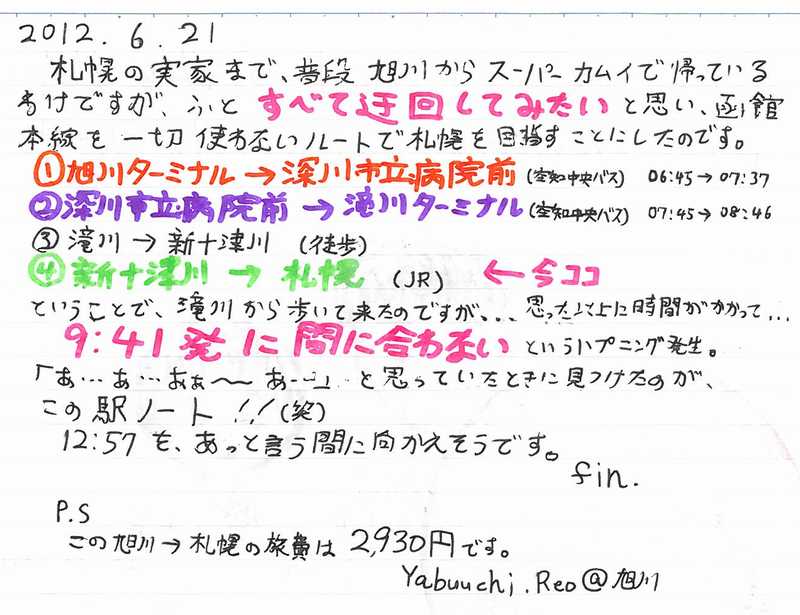 2012.6.21
札幌の実家まで、普段 旭川から スーパーカムイで 帰っている
わけですが、ふと すべて迂回してみたい と思い、函館
本線を 一切 使わないルートで札幌を目指すことにしたのです。
①旭川ターミナル → 深川市立病院前 (空知中央バス) 06:45 → 07:37
②深川市立病院前 → 滝川ターミナル (空知中央バス) 07:45 → 08:46
③滝川 → 新十津川 (徒歩)
④新十津川 → 札幌 (JR) ←今ココ
ということで、滝川から歩いて来たのですが、、、 思った以上に時間がかかって...
9:41発に間に合わない というハプニング発生。
「あ…ぁ…あぁ〜 あ…」 と思っていたときに見つけたのが、
この駅ノート !!(笑)
12:57を、あっと言う間に向かえそうです。
fin.
P.S
この旭川→札幌の旅費は 2,930円です。
Yabuuchi.Reo@旭川